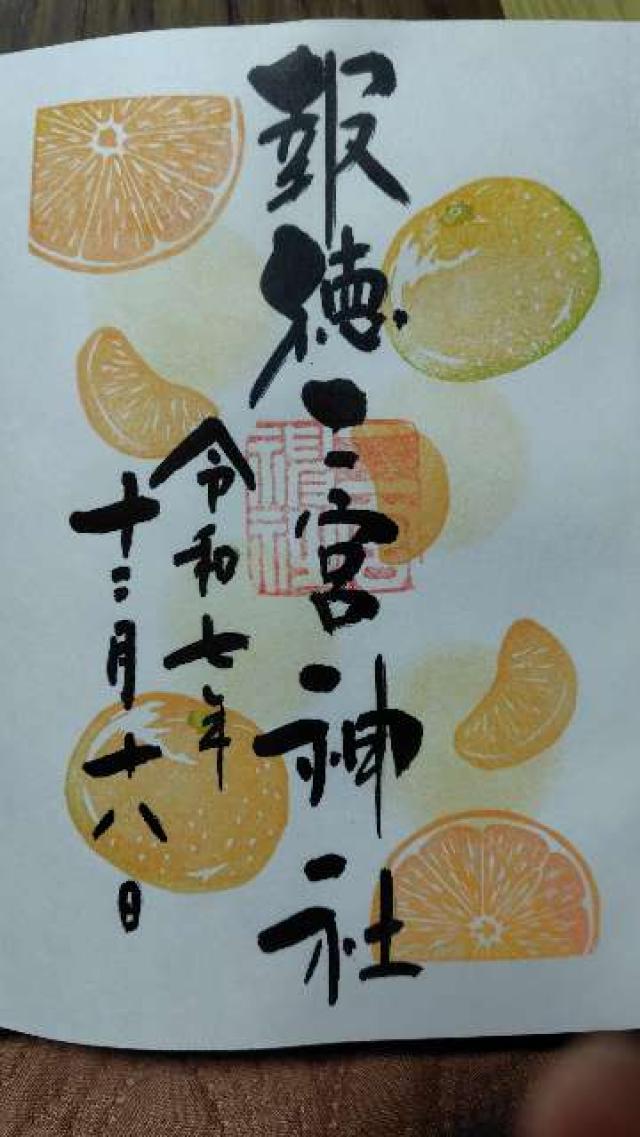 報徳二宮神社
令和七年
十二月十八日